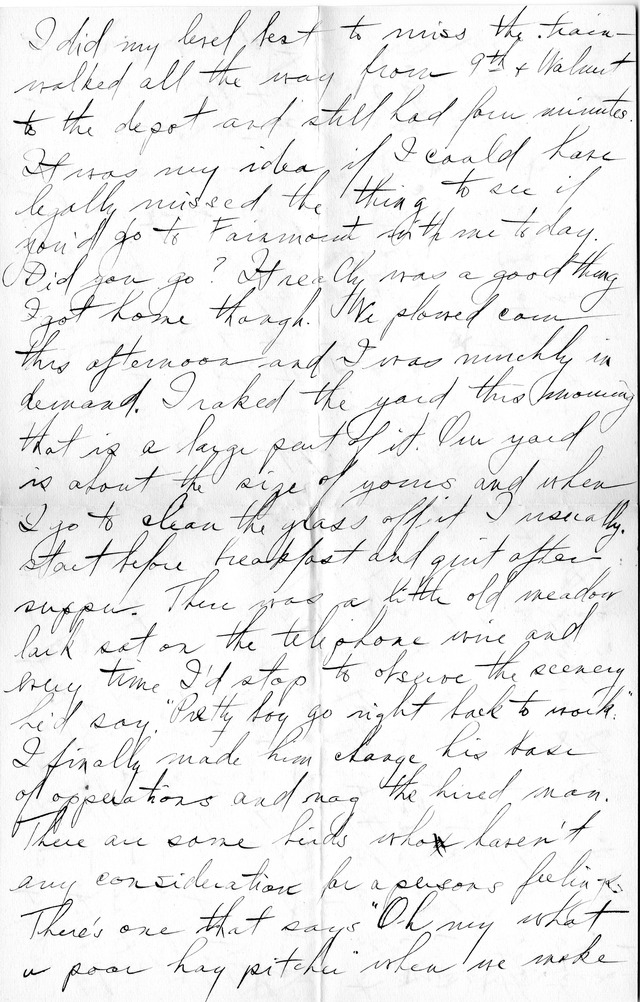 I did my level best to miss the train -
walked all the way from 9th + Walnut
to the depot and still had four minutes.
It was my idea if I could have
legally missed the thing to see if
you'd go to Fairmount with me today.
Did you go? It really was a good thing
I got home though. We plowed corn
this afternoon and I was muchly in
demand. I raked the yard this morning
that is a large part of it. Our yard
is about the size of yours and when
I go to clean the grass off it I usually
start before breakfast and quit after
supper. There was a little old meadow
lark sat on the telephone wire and
every time I'd stop to observe the scenery
he'd say "Pretty boy go right back to work."
I finally made him change his base
of opperations and nag the hired man.
There are some birds who haven't
any consideration for a persons feelings.
There's one that says "Oh my what
a poor hay pitcher" when we make